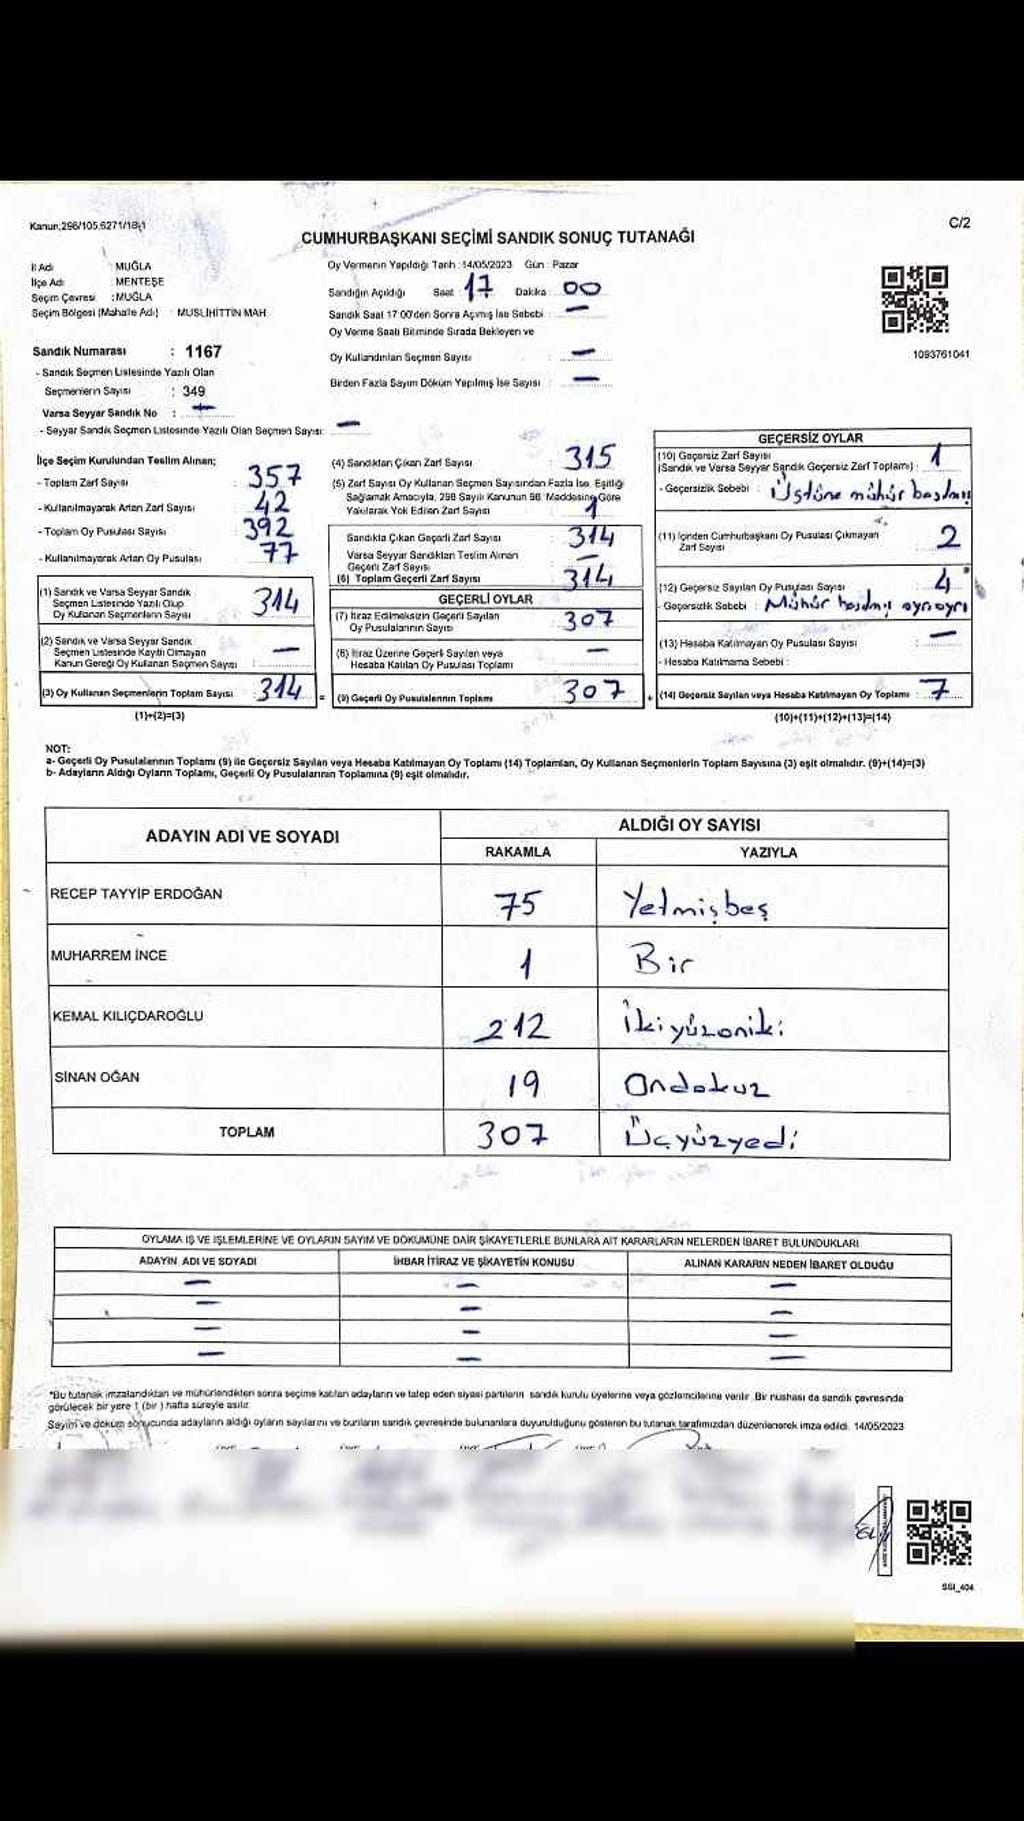 Kanun;298/105,6271/18-1
C/2
CUMHURBAŞKANI SEÇİMİ SANDIK SONUÇ TUTANAĞI
İl Adı : MUĞLA
İlçe Adı : MENTEŞE
Seçim Çevresi : MUĞLA
Seçim Bölgesi (Mahalle Adı) : MUSLİHİTTİN MAH.
Sandık Numarası : 1167
- Sandık Seçmen Listesinde Yazılı Olan
Seçmenlerin Sayısı : 349
Varsa Seyyar Sandık No : —
- Seyyar Sandık Seçmen Listesinde Yazılı Olan Seçmen Sayısı: —
Oy Vermenin Yapıldığı Tarih : 14/05/2023 Gün : Pazar
Sandığın Açıldığı Saat : 17 Dakika : 00
Sandık Saat 17:00'den Sonra Açımış İse Sebebi : —
Oy Verme Saati Bitiminde Sırada Bekleyen ve
Oy Kullandırılan Seçmen Sayısı : —
Birden Fazla Sayım Döküm Yapılmış İse Sayısı : —
1093761041
İlçe Seçim Kurulundan Teslim Alınan;
- Toplam Zarf Sayısı : 357
- Kullanılmayarak Artan Zarf Sayısı : 42
- Toplam Oy Pusulası Sayısı : 392
- Kullanılmayarak Artan Oy Pusulası : 77
(1) Sandık ve Varsa Seyyar Sandık
Seçmen Listesinde Yazılı Olup
Oy Kullanan Seçmenlerin Sayısı : 314
(2) Sandık ve Varsa Seyyar Sandık
Seçmen Listesinde Kayıtlı Olmayan
Kanun Gereği Oy Kullanan Seçmen Sayısı : —
(3) Oy Kullanan Seçmenlerin Toplam Sayısı : 314 =
(1)+(2)=(3)
(4) Sandıktan Çıkan Zarf Sayısı : 315
(5) Zarf Sayısı Oy Kullanan Seçmen Sayısından Fazla İse, Eşitliği
Sağlamak Amacıyla, 298 Sayılı Kanunun 98. Maddesine Göre
Yakılarak Yok Edilen Zarf Sayısı : 1
Sandıkta Çıkan Geçerli Zarf Sayısı : 314
Varsa Seyyar Sandıktan Teslim Alınan
Geçerli Zarf Sayısı : —
(6) Toplam Geçerli Zarf Sayısı : 314
GEÇERLİ OYLAR
(7) İtiraz Edilmeksizin Geçerli Sayılan
Oy Pusulalarının Sayısı : 307
(8) İtiraz Üzerine Geçerli Sayılan veya
Hesaba Katılan Oy Pusulası Toplamı : —
(9) Geçerli Oy Pusulalarının Toplamı : 307 +
GEÇERSİZ OYLAR
(10) Geçersiz Zarf Sayısı
(Sandık ve Varsa Seyyar Sandık Geçersiz Zarf Toplamı) : 1
- Geçersizlik Sebebi : Üstüne mühür basılmış
(11) İçinden Cumhurbaşkanı Oy Pusulası Çıkmayan
Zarf Sayısı : 2
(12) Geçersiz Sayılan Oy Pusulası Sayısı : 4
- Geçersizlik Sebebi : Mühür basılmış ayrı ayrı
(13) Hesaba Katılmayan Oy Pusulası Sayısı : —
- Hesaba Katılmama Sebebi :
(14) Geçersiz Sayılan veya Hesaba Katılmayan Oy Toplamı : 7
(10)+(11)+(12)+(13)=(14)
NOT:
a- Geçerli Oy Pusulalarının Toplamı (9) ile Geçersiz Sayılan veya Hesaba Katılmayan Oy Toplamı (14) Toplamları, Oy Kullanan Seçmenlerin Toplam Sayısına (3) eşit olmalıdır. (9)+(14)=(3)
b- Adayların Aldığı Oyların Toplamı, Geçerli Oy Pusulalarının Toplamına (9) eşit olmalıdır.
ADAYIN ADI VE SOYADI ALDIĞI OY SAYISI
RAKAMLA YAZIYLA
RECEP TAYYİP ERDOĞAN 75 Yetmişbeş
MUHARREM İNCE 1 Bir
KEMAL KILIÇDAROĞLU 212 İkiyüzoniki
SİNAN OĞAN 19 Ondokuz
TOPLAM 307 Üçyüzyedi
OYLAMA İŞ VE İŞLEMLERİNE VE OYLARIN SAYIM VE DÖKÜMÜNE DAİR ŞİKAYETLERLE BUNLARA AİT KARARLARIN NELERDEN İBARET BULUNDUKLARI
ADAYIN ADI VE SOYADI İHBAR İTİRAZ VE ŞİKAYETİN KONUSU ALINAN KARARIN NEDEN İBARET OLDUĞU
— — —
— — —
— — —
— — —
*Bu tutanak imzalandıktan ve mühürlendikten sonra seçime katılan adayların ve talep eden siyasi partilerin sandık kurulu üyelerine veya gözlemcilerine verilir. Bir nüshası da sandık çevresinde
görülecek bir yere 1 (bir) hafta süreyle asılır.
Sayım ve döküm sonucunda adayların aldığı oyların sayılarını ve bunların sandık çevresinde bulunanlara duyurulduğunu gösteren bu tutanak tarafımızdan düzenlenerek imza edildi. 14/05/2023
SSI_404